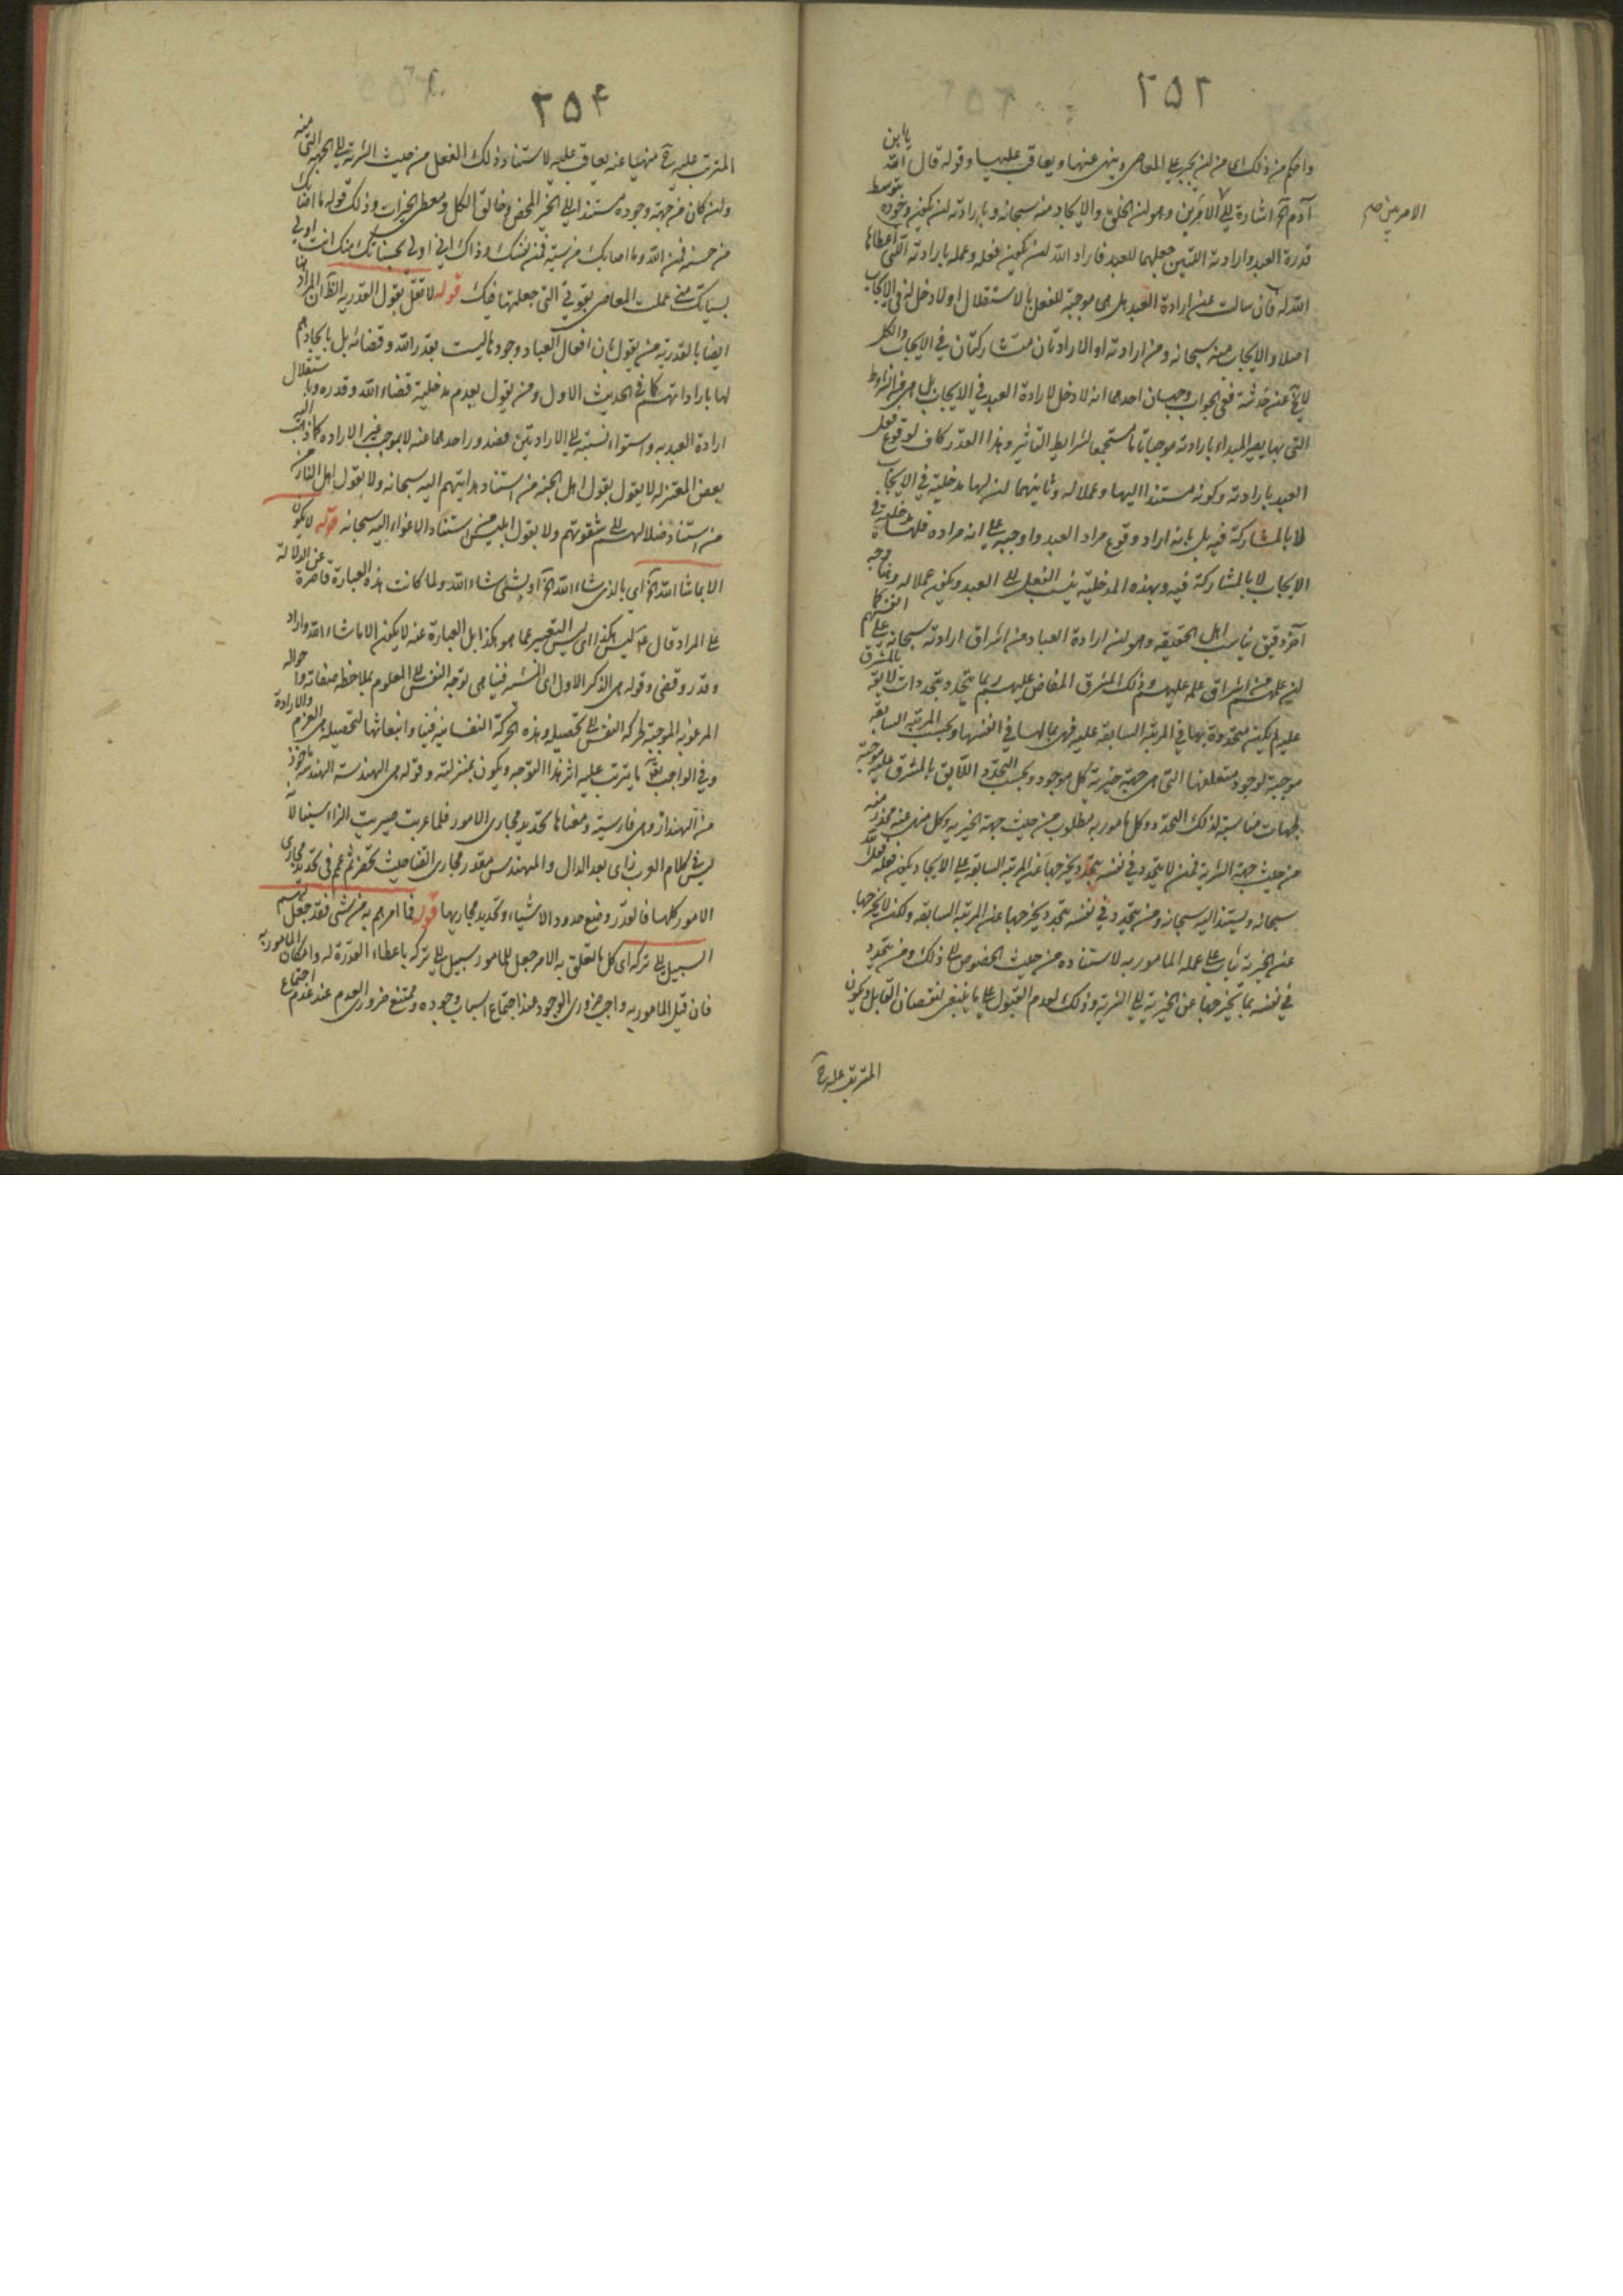 ٢٥٢
واحكم من ذلك اى من ان يجبر على المعاصى وينهى عنها ويعاقب عليها وقوله قال الله يا ابن
آدم آه اشارة الى الامرين وهو ان الخلق والايجاد منه سبحانه وبارادته ان يكون وجوده بتوسط
الامرين صح
قدرة العبد وارادته اللتين جعلهما للعبد فاراد الله ان يكون فعله وعمله بارادته التى اعطاها
الله له فان سالت عن ارادة العبد هل هى موجبة للفعل بالاستقلال او لا دخل له فى الايجاب
اصلا والايجاب منه سبحانه ومن ارادته او الارادتان متشاركتان فى الايجاب والكل
لا يخ عن خدشة ففى الجواب وجهان احدهما انه لا دخل لارادة العبد فى الايجاب بل هى من الشرايط
التى بها يصير المبدء بارادته موجبا تاما مستجمعا لشرايط التأثير وهذا القدر كاف لوقوع فعل
العبد بارادته وكونه مستندا اليها وعملا له وثانيهما ان لها مدخلية فى الايجاب
لا بالمشاركة فيه بل بانه اراد وقوع مراد العبد واوجبه على انه مراده فلها مدخلية فى
الايجاب لا بالمشاركة فيه وبهذه المدخلية ينسب الفعل الى العبد ويكون عملا له وهنا وجه
آخر دقيق يناسب اهل الحقيقة وهو ان ارادة العباد من اشراق ارادته سبحانه على انفسهم كما
ان علمهم من اشراق علمه عليهم وذلك المشرق المفاض عليهم ربما يتجدد بتجددات لايقة بالمشرق
عليه لم يكن متجددة بها فى المرتبة السابقة عليه فهى بما لها فى انفسها وبحسب المرتبة السابقة
موجبة لوجود متعلقها التى هى جهة خيرية كل موجود وبحسب التجدد اللايق بالمشرق عليه موجبة
لجهات مناسبة لذلك التجدد وكل مامور به مطلوب من حيث جهة الخيرية وكل منهى عنه محذر منه
من حيث جهة الشرية فمن لا يتجدد فى نفسه بتجدد يخرجها عن المرتبة السابقة على الايجاد يكون فعله فعل الله
سبحانه ويستند اليه سبحانه ومن يتجدد فى نفسه بتجدد يخرجها عن المرتبة السابقة ولكن لا يخرجها
عن الخيرية يثاب على عمله المامور به لاستناده من حيث الخصوص الى ذلك ومن يتجدد
فى نفسه بما يخرجها عن الخيرية الى الشرية وذلك لعدم القبول على ما ينبغى لنقصان القابل ويكون
المترتب عليه ح
٢٥٤
المترتب عليه ح منهيا عنه يعاقب عليه لاستناد ذلك الفعل من حيث الشرية الى الجهة التى منه
وان كان من جهة وجوده مستندا الى الخير المحض وخالق الكل ومعطى الخيرات وذلك قوله ما اصابك
من حسنة فمن الله وما اصابك من سيئة فمن نفسك وذاك انى اولى بحسناتك منك وانت اولى
بسياتك منى عملت المعاصى بقوتى التى جعلتها فيك قوله لا تقل بقول القدرية الظ ان المراد هنا
ايضا بالقدرية من يقول بان افعال العباد وجودها ليست بقدر الله وقضائه بل بايجادهم
لها باراداتهم كما فى الحديث الاول ومن يقول بعدم مدخلية قضاء الله وقدره وباستقلال
ارادة العبد به واستواء نسبته الى الارادتين وصدور احدهما عنه لا بموجب غير الارادة كما ذهب اليه
بعض المعتزلة لا يقول بقول اهل الجنة من استناد هدايتهم اليه سبحانه ولا بقول اهل النار
من استناد ضلالهم الى شقوتهم ولا بقول ابليس من استناد الاغواء اليه سبحانه قوله لا يكون
الا بما شاء الله آه اى بالذى شاء الله آه او بشئ شاء الله ولما كانت هذه العبارة قاصرة عن الدلالة
على المراد قال ع ليس هكذا اى ليس التعبير عما هو هكذا بل العبارة عنه لا يكون الا ما شاء الله واراد
وقدر وقضى وقوله هى الذكر الاول اى المشية فينا هى توجه النفس الى المعلوم بملاحظة صفاته واحواله
المرغوبة الموجبة لحركة النفس الى تحصيله وهذه الحركة النفسانية فينا وانبعاثها لتحصيله هى العزم والارادة
وفى الواجب تعالى ما يترتب عليه اثر هذا التوجه ويكون بمنزلته وقوله هى الهندسة الهندسة ماخوذ
من الهنداز وهى فارسية ومعناها تحديد مجارى الامور فلما عربت صيرت الزاء سينا لانه
ليس فى كلام العرب زاى بعد الدال والمهندس مقدر مجارى القنا حيث تحفر ثم عمم فى تحديد مجارى
الامور كلها فالقدر وضع حدود الاشياء وتحديد مجاريها قوله فما امرهم به من شئ فقد جعل لهم
السبيل الى تركه اى كل ما تعلق به الامر جعل للمامور سبيل الى تركه باعطاء القدرة له وامكان المامور به
فان قيل المامور به واجب ضرورى الوجود عند اجتماع اسباب وجوده وممتنع ضرورى العدم عند عدم اجتماع